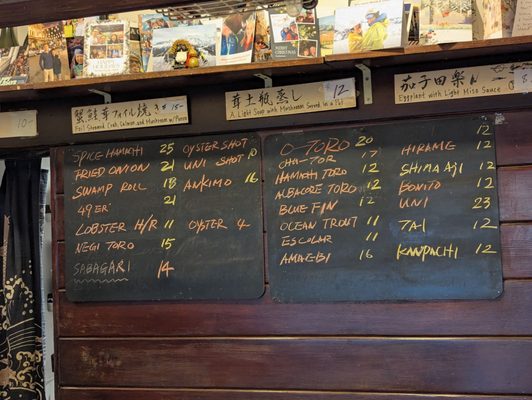 10-
蟹 鮭 茸 フォイル焼 $15-
Foil Steamed Crab, Salmon, and Mushroom w/ Ponzu
茸土瓶蒸し 12-
A Light Soup with Mushroom Served in a Pot
茄子田楽
Eggplant with Light Miso Sauce
SPICE HAMACHI 25
FRIED ONION 21
SWAMP ROLL 18
49ER 21
LOBSTER H/R 11
NEGI TORO 15
SABAGARI 14
OYSTER SHOT
UNI SHOT 10
ANKIMO 16
OYSTER 4
O-TORO 20
CHA-TOR 17
HAMACHI TORO 12
ALBACORE TORO 12
BLUE FIN 12
OCEAN TROUT 11
ESCOLAR 11
AMAEBI 16
12
HIRAME 12
SHIMA AJI 12
BONITO 12
UNI 23
TAI 12
KANPACHI 12